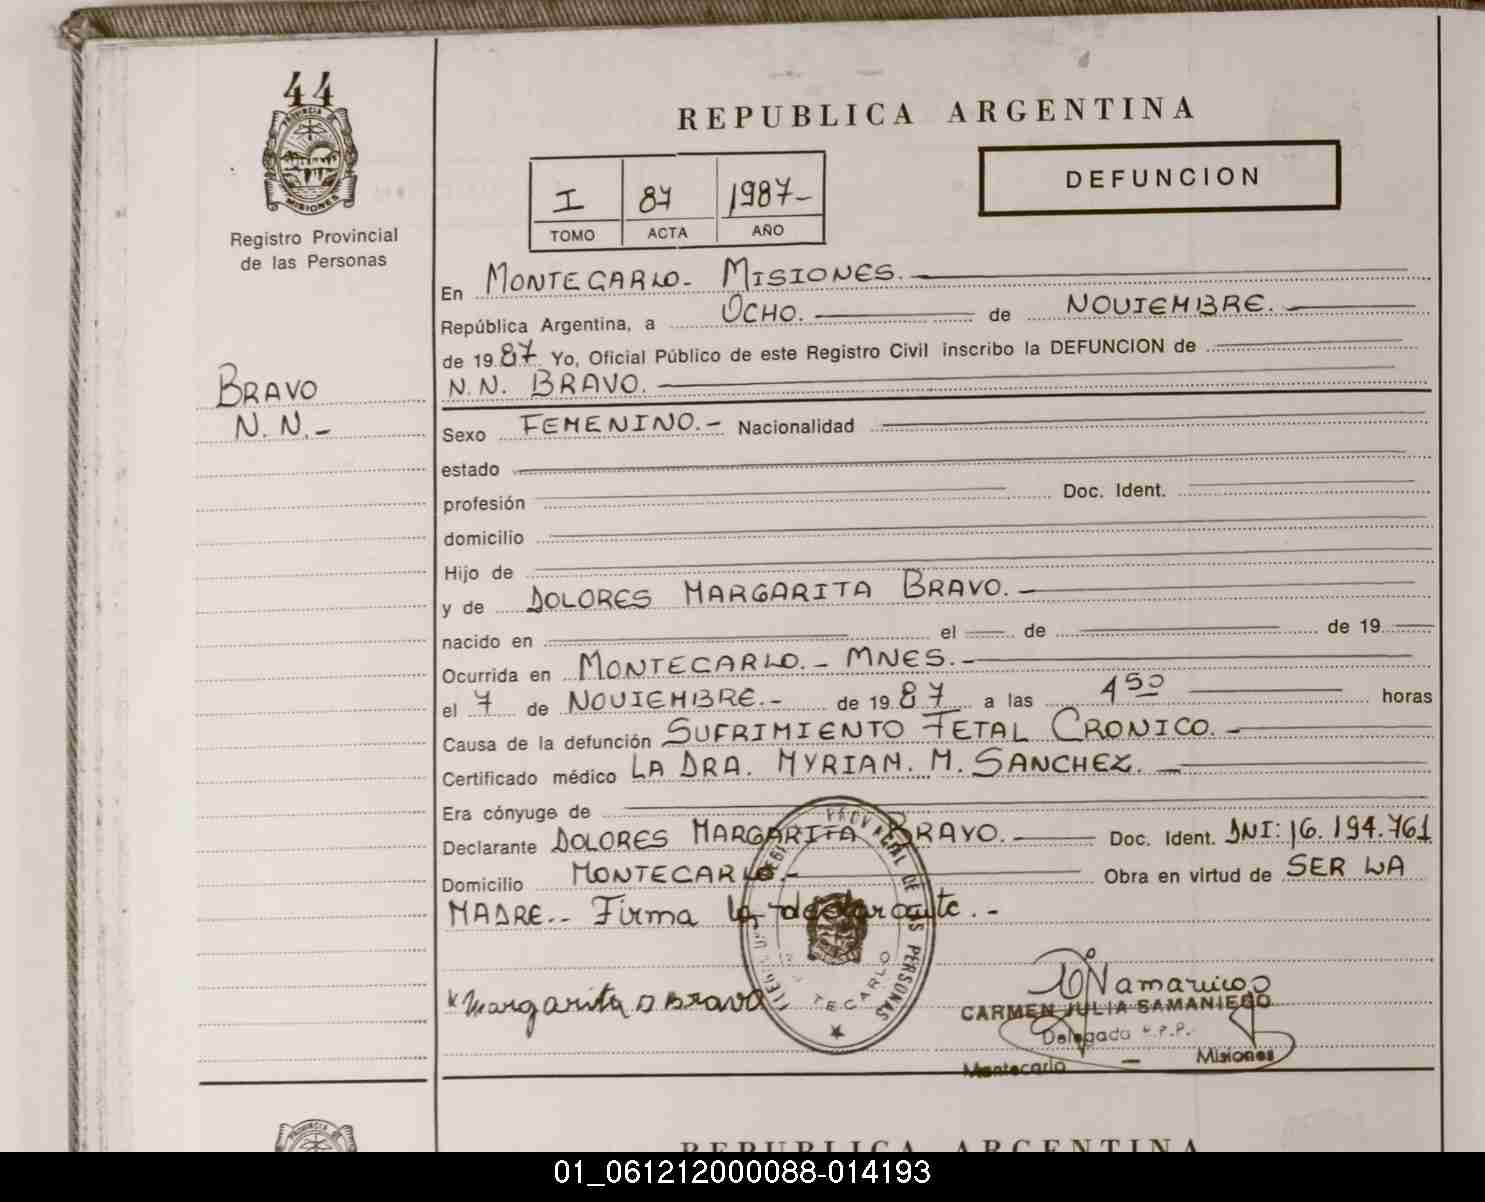 44
PROVINCIA DE
MISIONES
Registro Provincial
de las Personas
BRAVO
N. N. -
REPUBLICA ARGENTINA
I 87 1987-
TOMO ACTA AÑO
DEFUNCION
En MONTECARLO- MISIONES.
República Argentina, a OCHO. de NOVIEMBRE.
de 19 87 Yo, Oficial Público de este Registro Civil inscribo la DEFUNCION de
N.N. BRAVO.
Sexo FEMENINO.- Nacionalidad
estado
profesión Doc. Ident.
domicilio
Hijo de
y de DOLORES MARGARITA BRAVO.
nacido en el de de 19
Ocurrida en MONTECARLO.- MNES.-
el 7 de NOVIEMBRE.- de 19 87 a las 4 50 horas
Causa de la defunción SUFRIMIENTO FETAL CRONICO.-
Certificado médico LA DRA. MYRIAM. M. SANCHEZ.
Era cónyuge de
Declarante DOLORES MARGARITA BRAVO. Doc. Ident. DNI: 16.194.761
Domicilio MONTECARLO.- Obra en virtud de SER LA
MADRE.- Firma la declarante.-
PERSONAS
Margarita D Bravo
CARMEN JULIA SAMANIEGO
Delegada R.P.P.
Montecarlo - Misiones
REPUBLICA ARGENTINA
01_061212000088-014193